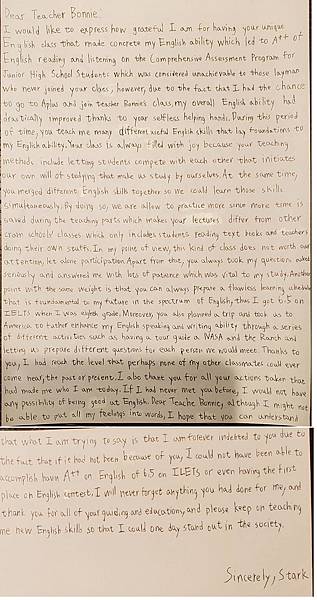 Dear Teacher Bonnie:
I would like to express how grateful I am for having your unique
English class that made concrete my English ability which led to A++ of
English reading and listening on the Comprehensive Assessment Program for
Junior High School Students which was considered unachievable to those layman
who never joined your class, however, due to the fact that I had the chance
to go to Aplus and join teacher Bonnie's class, my overall English ability had
drastically improved thanks to your selfless helping hands. During this period
of time, you teach me many different useful English skills that lay foundations to
my English ability. Your class is always filled with joy because your teaching
methods include letting students compete with each other that initiates
our own will of studying that make us study by ourselves. At the same time,
you merged different English skills together so we could learn those skills
simultaneously. By doing so, we are allow to practice more since more time is
saved during the teaching parts which makes your lectures differ from other
cram schools' classes which only includes students reading text books and teachers
doing their own stuff. In my point of view, this kind of class does not worth our
attention, let alone participation. Apart from that, you always took my question asked
seriously and answered me with lots of patience which was vital to my study. Another
point with the same weight is that you can always prepare a flawless learning schedule
that is foundamental to my future in the spectrum of English, thus I got 6.5 on
IELTS when I was eighth grade. Moreover, you also planned a trip and took us to
America to further enhance my English speaking and writing ability through a series
of different activities such as, having a tour guide a NASA and the Ranch and
letting us prepare different questions for each person we would meet. Thanks to
you, I had reach the level that perhaps none of my other classmates could ever
come near, the past or present. I also thank you for all your actions taken that
had made me who I am today. If I had never met you before, I would not have
any possibility of being good at English. Dear Teacher Bonnie, although I might not
be able to put all my feelings into words, I hope that you can understand
that what I am trying to say is that I am forever indebted to you due to
the fact that if it had not been because of you, I could not have been able to
accomplish havin A++ on English of 6.5 on IELTS or even having the first
place on English contest. I will never forget anything you had done for me, and
thank you for all of your guiding and educationg, and please keep on teaching
me new English skills so that I could one day stand out in the society.
Sincerely, Stark